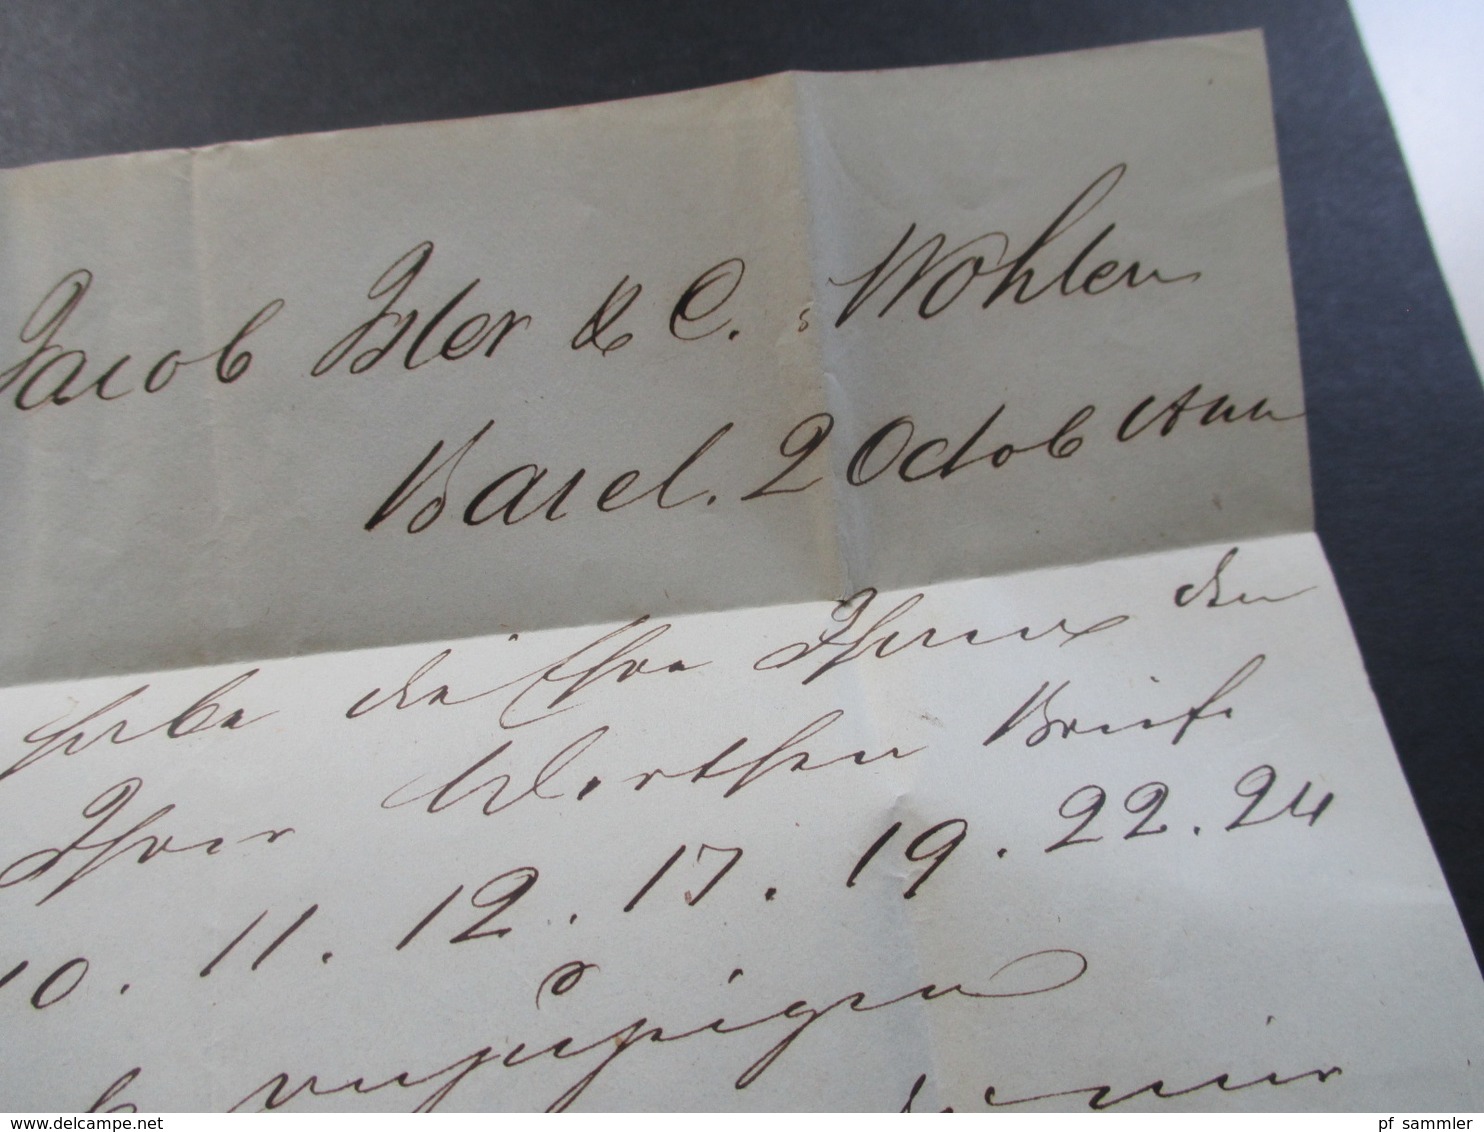 Jacob Isler & C. Wohlen
Basel. 2 Octob
habe die Ehre Ihnen den
Ihrer Werthen Briefe
10. 11. 12. 17. 19. 22. 24
www.delcampe.net
pf_sammler